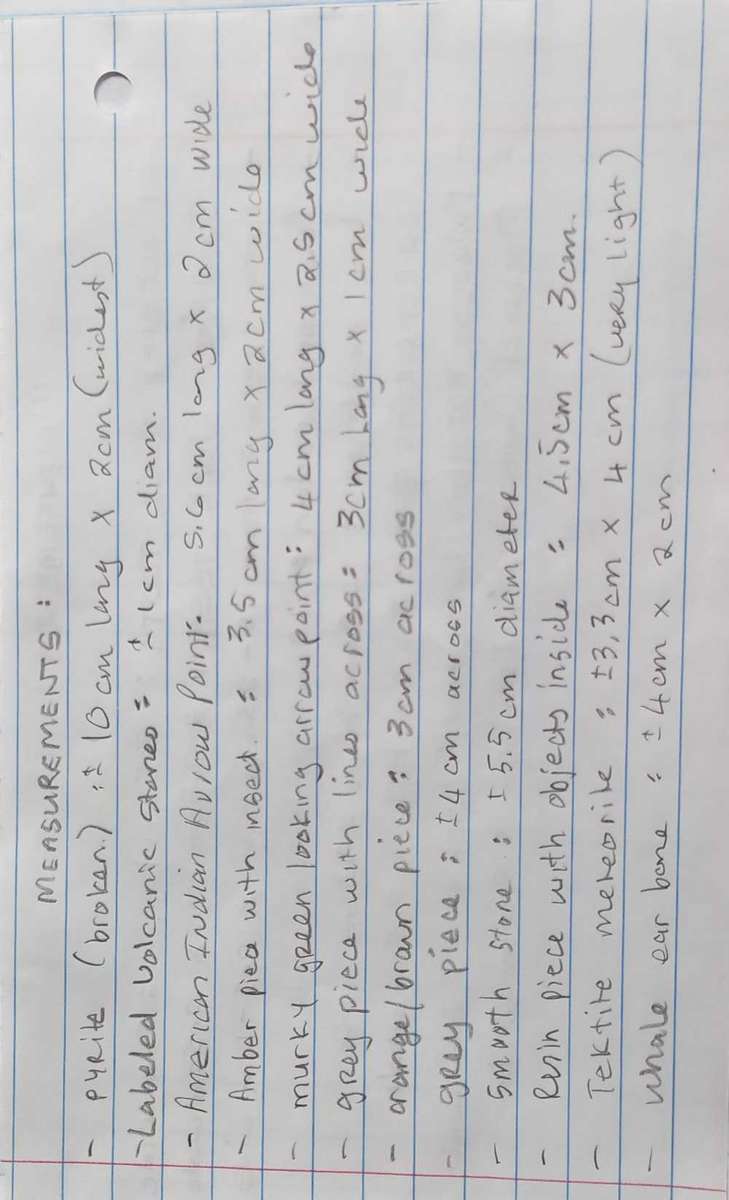 MEASUREMENTS:
- PYRITE (broken) : ± 10 cm long x 2cm (widest)
- Labeled Volcanic stones : ± 1cm diam.
- American Indian Arrow Point: 5.6 cm long x 2 cm wide
- Amber piece with insect : 3.5 cm long x 2cm wide
- murky green looking arrowpoint : 4 cm long x 2.5 cm wide
- grey piece with lines across : 3cm long x 1cm wide
- orange/brown piece : 3cm across
- grey piece : ±4 cm across
- smooth stone : ± 5.5 cm diameter
- piece with objects inside : 4.5cm x 3cm.
- Tektite meteorite : ±3,3cm x 4 cm (very light)
- whale ear bone : ±4cm x 2cm